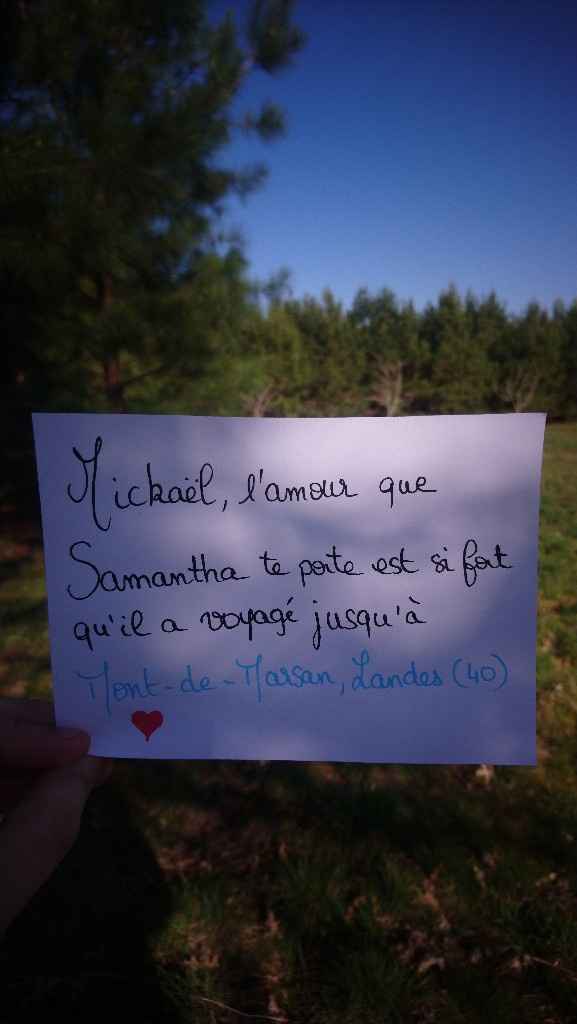 Mickaël, l'amour que
Samantha te porte est si fort
qu'il a voyagé jusqu'à
Mont-de-Marsan, Landes (40)